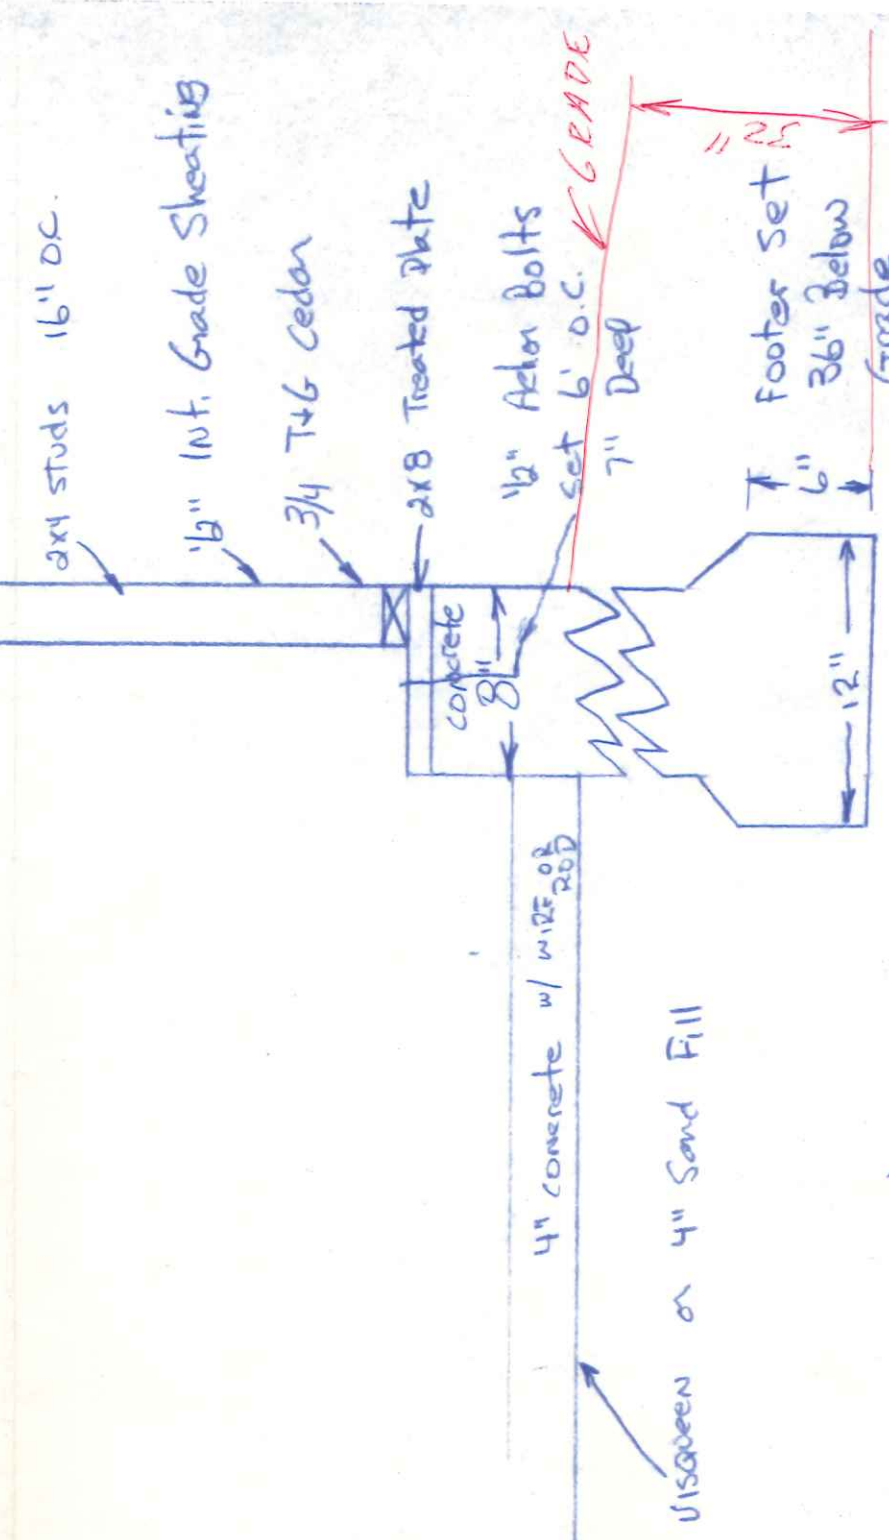 2x4 studs 16" O.C.
1/2" INt. Grade Sheating
3/4 T+G Cedar
2x8 Treated Plate
1/2" Achor Bolts
Set 6' O.C.
7" Deep
GRADE
concrete
8"
Footer Set
36" Below
Grade
6"
12"
4" concrete w/ WIRE OR
ROD
VISQUEEN or 4" Sand Fill